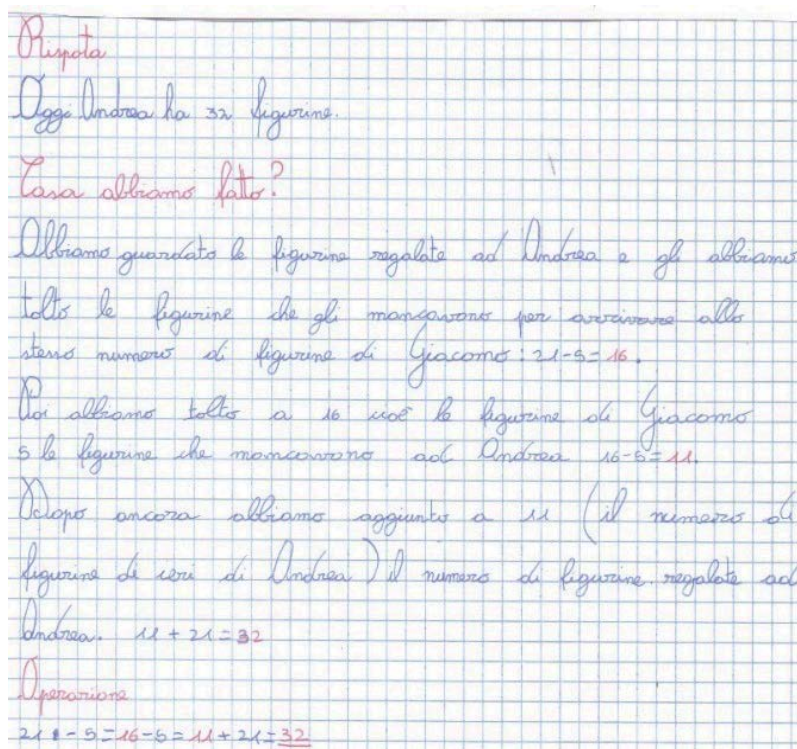 Rispota
Oggi Andrea ha 32 figurine.
Cosa abbiamo fatto?
Abbiamo guardato le figurine regalate ad Andrea e gli abbiamo
tolto le figurine che gli mancavano per arrivare allo
stesso numero di figurine di Giacomo: 21-5=16.
Poi abbiamo tolto a 16 cioè le figurine di Giacomo
5 le figurine che mancavano ad Andrea 16-5=11.
Dopo ancora abbiamo aggiunto a 11 (il numero di
figurine di ieri di Andrea) il numero di figurine regalate ad
Andrea. 11+21=32
Operazione
21-5=16-5=11+21=32